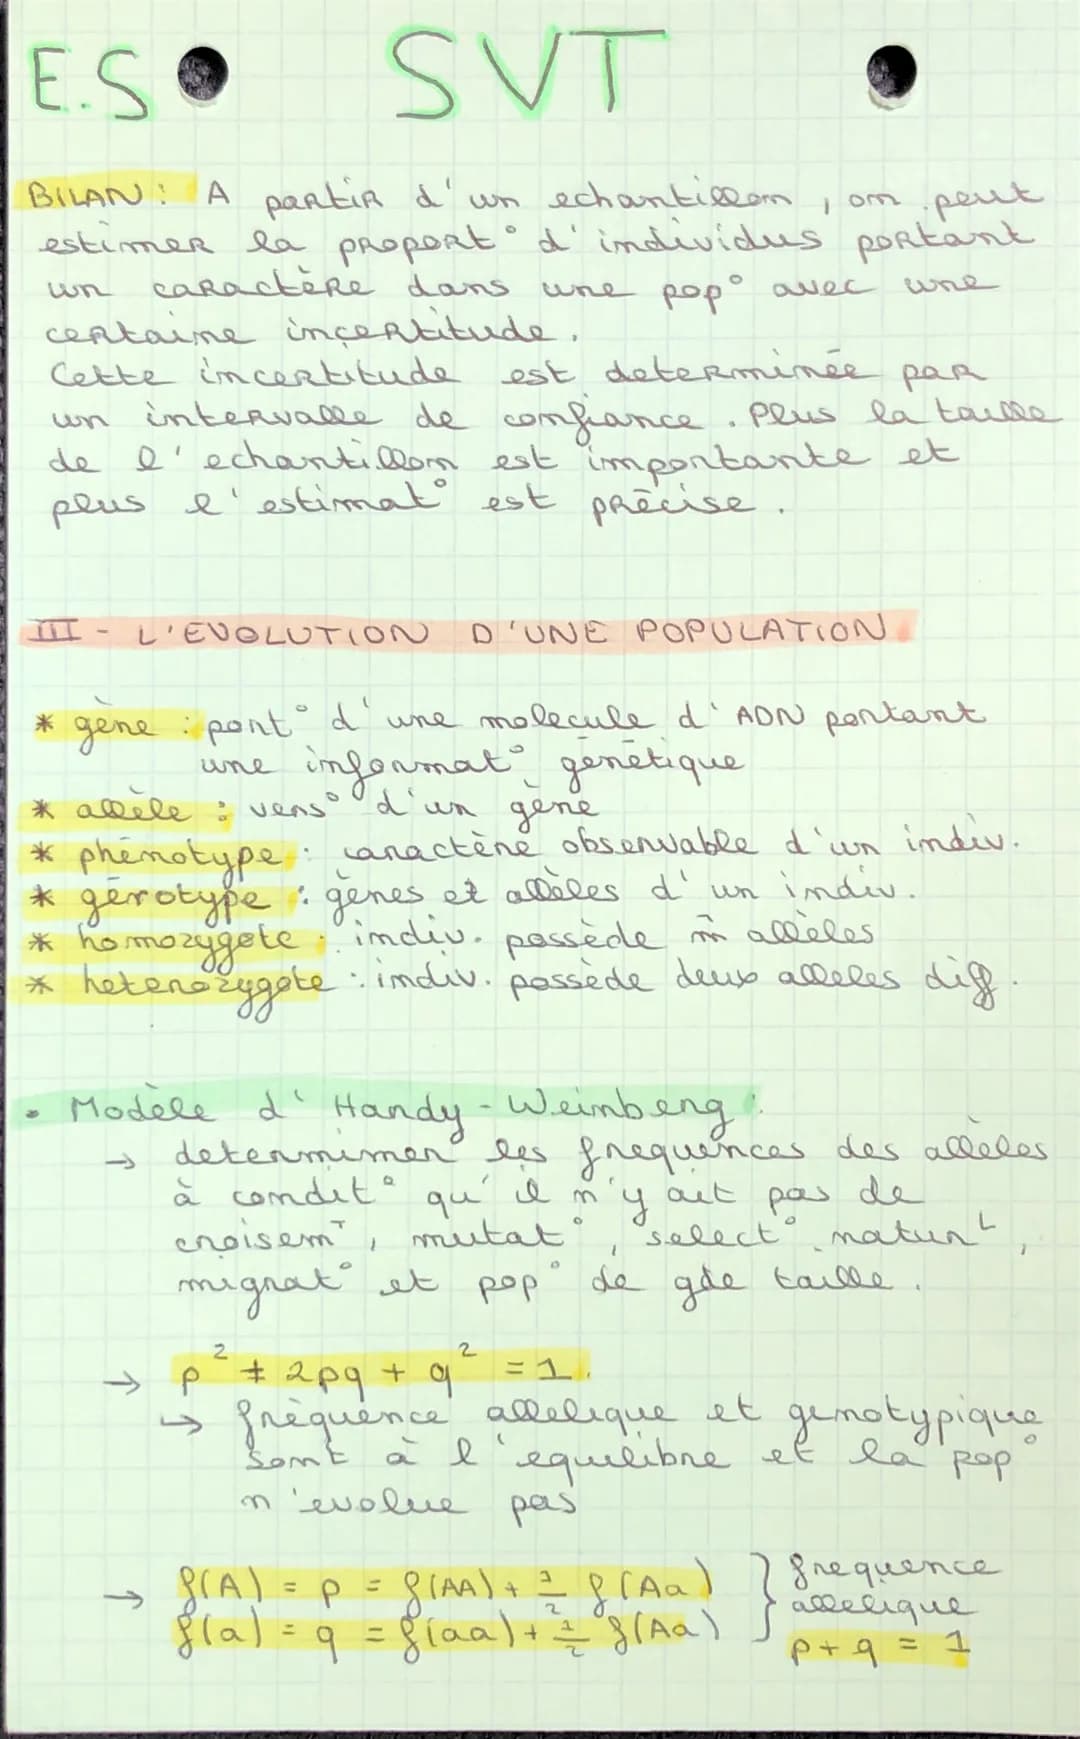 E.S SVT
BILAN : A partir d'un echantillon, on peut
estimer la proport° d'individus portant
un caractère dans une pop° avec une
certaine incertitude.
Cette incertitude est determinée par
un intervalle de confiance. Plus la taille
de l'echantillon est importante et
plus l'estimat° est précise.
III - L'EVOLUTION D'UNE POPULATION
* gène : port° d'une molecule d'ADN portant
une informat° génétique
* allèle : vers° d'un gène
* phénotype : caractère observable d'un indiv.
* génotype : gènes et allèles d'un indiv.
* homozygote : indiv. possède m̂ allèles
* heterozygote : indiv. possède deux alleles diff.
• Modèle d'Hardy-Weinberg :
→ determiner les frequences des allèles
à condit° qu'il n'y ait pas de
croisemᵀ, mutat°, select° naturᴸ,
migrat° et pop° de gde taille.
→ p² + 2pq + q² = 1.
↳ fréquence allelique et genotypique
sont à l'equilibre et la pop°
n'evolue pas
→ f(A) = p = f(AA) + 1/2 f(Aa) } frequence
f(a) = q = f(aa) + 1/2 f(Aa) allelique
p + q = 1